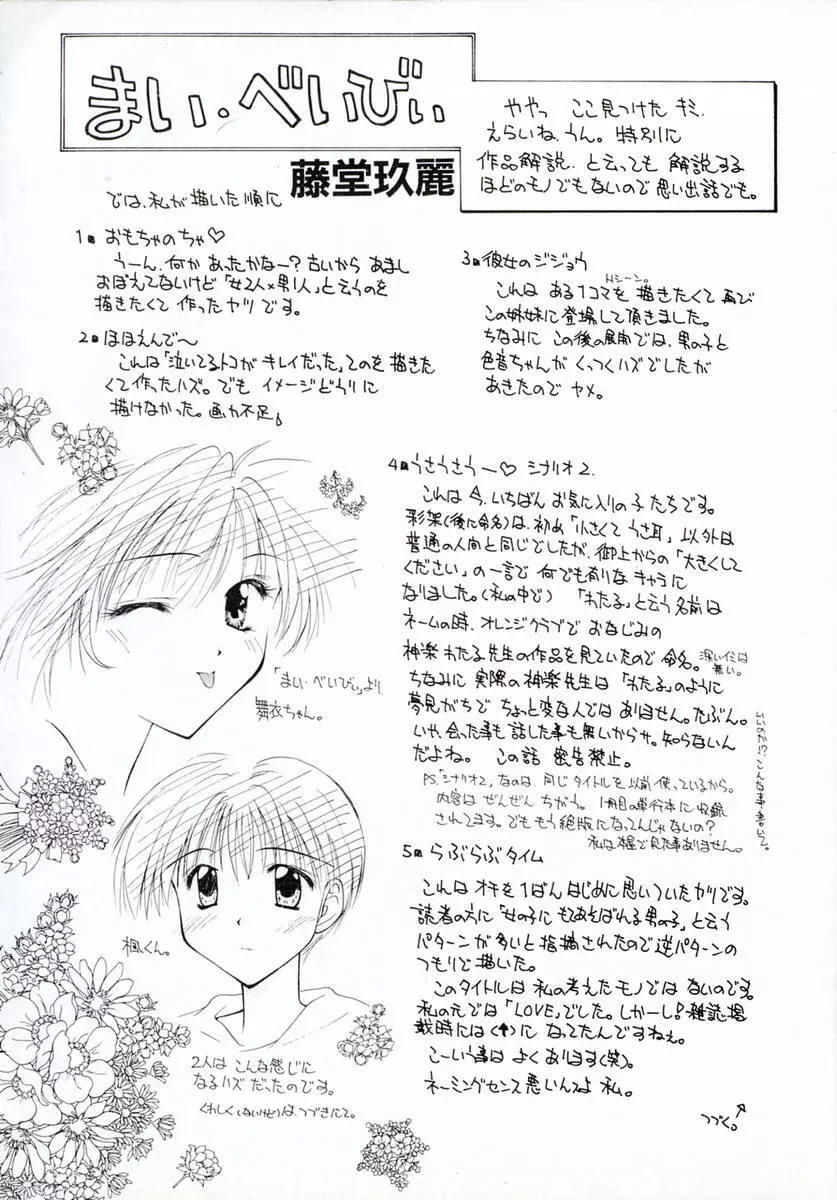 まい・べいびぃ
藤堂玖麗
ややっ ここ見つけた キミ、
えらいね、うん。特別に
作品解説、と云っても 解説する
ほどのモノでもないので 思い出話でも。
では、私が描いた順に
1■ おもちゃのちゃ♡
うーん、何か あったかなー?古いから あまし
おぼえてないけど「女2人×男1人」と云うのを
描きたくて 作ったヤツ です。
2■ ほほえんで〜
これは「泣いてるトコが キレイだった」てのを 描きた
くて作ったハズ。でも イメージどうりに
描けなかった。画力不足。
3■ 彼女のジジョウ
Hシーン。
これは ある1コマを 描きたくて 再び
この姉妹に登場して頂きました。
ちなみに この後の展開では、男の子と
色音ちゃんが くっつくハズでしたが
あきたので ヤメ。
4■ うさうさうー♡ シナリオ2.
これは 今、いちばん お気に入りの子たちです。
彩架(後に命名)は、初め「小さくて うさ耳」以外は
普通の人間と同じでしたが、御上からの「大きくして
ください」の一言で 何でも有りな キャラに
なりました。(私の中で) 「わたる」と云う名前は
ネームの時、オレンジクラブで おなじみの
神楽 わたる先生の作品を見ていたので 命名。
深いイミは
無い。
ちなみに 実際の神楽先生は 「わたる」のように
夢見がちで ちょっと変な人では ありません。たぶん。
いや、会った事も 話した事も 無いからサ。知らないん
だよね。 この話 密告禁止。
いいのか!?こんな事・書いて。
PS.「シナリオ2」なのは、同じタイトルを以前 使っているから。
内容は ぜんぜん ちがう。1冊目の単行本に収録
されてます。でも もう絶版になってんじゃないの?
私は本屋で見た事ありません。
5■ らぶらぶ タイム
これは オチを1ばん はじめに思いついたヤツです。
読者の方に「女の子に もてあそばれる男の子」と云う
パターンが 多いと指摘されたので 逆パターンの
つもりで描いた。
このタイトルは 私の考えた モノでは ないのです。
私の元では「LOVE」でした。しかーし!雑誌掲
載時には(↑)に なってたんですねぇ。
こーいう事は よく あります(笑)。
ネーミングセンス 悪いんでよ 私。
つづく。
「まい・べいびぃ」より、
舞衣ちゃん。
楓くん。
2人は こんな感じに
なるハズ だったのです。
くわしく(ないけど)は、つづきにて。